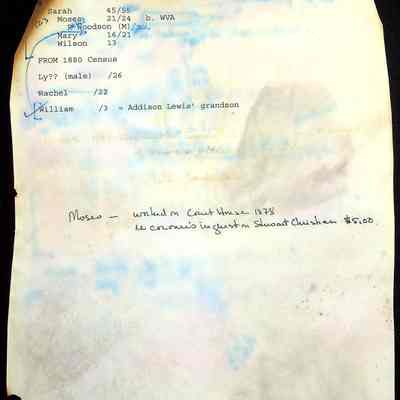 Sarah 45/55
Moses 21/24 b. WVA
Woodson (M)
Mary 16/21
Wilson 13
FROM 1880 Census
Ly?? (male) /26
Rachel /22
William /3 = Addison Lewis' grandson
Moses — worked on Court House 1878
re coroner's inquest on Stuart Chisham $5.00